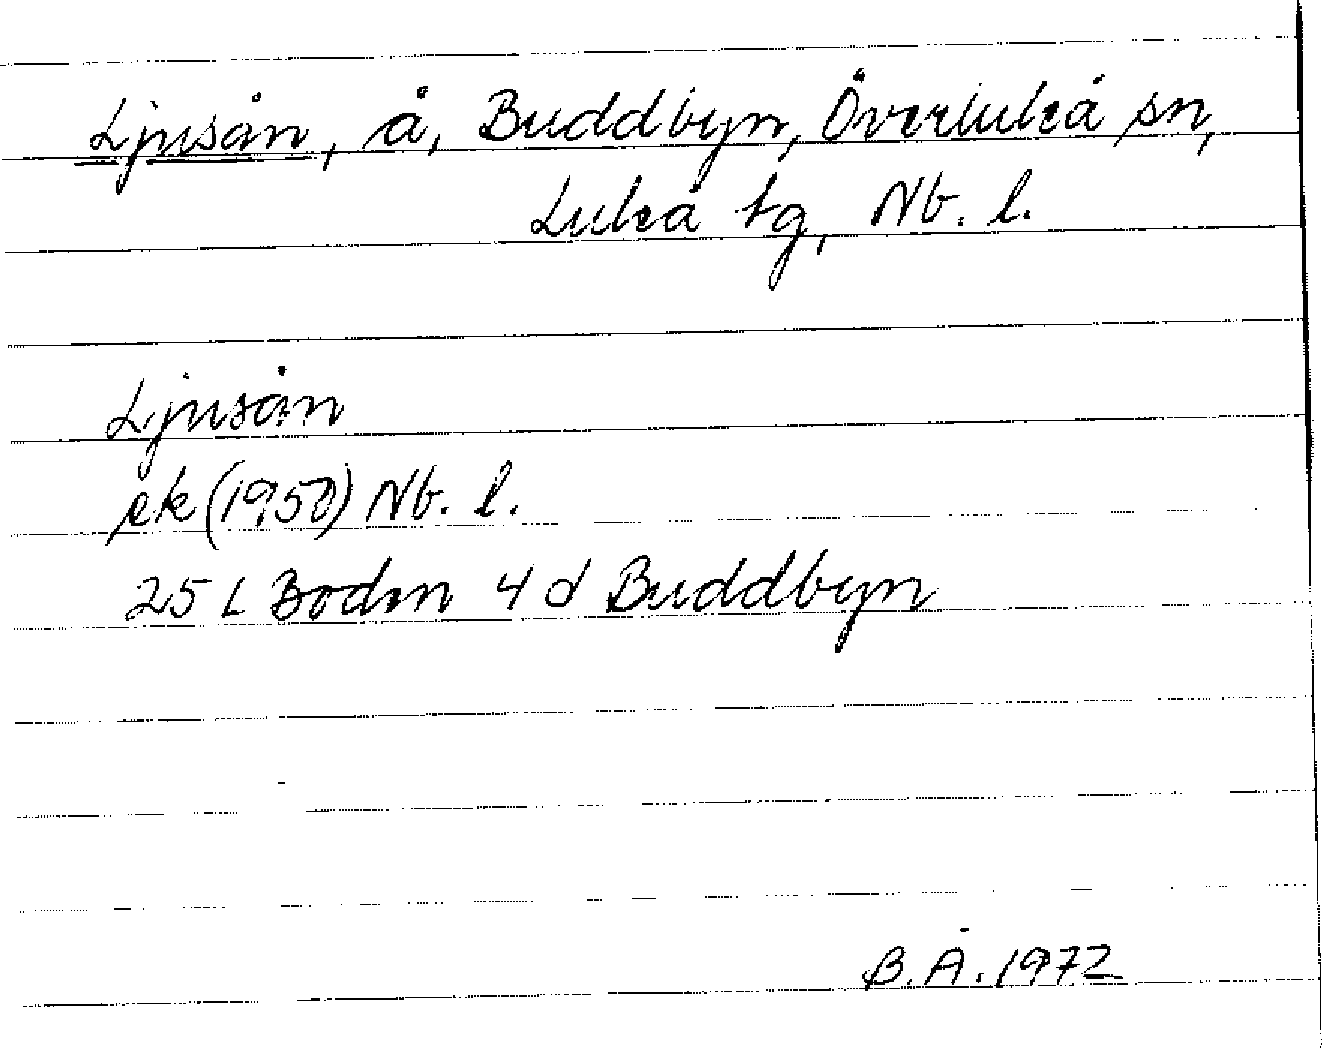 Ljusån, å, Buddbyn, Överluleå sn,
Luleå tg, Nb. l.
Ljusån
ek (1950) Nb. l.
25 L Boden 4 d Buddbyn
B.Å. 1972